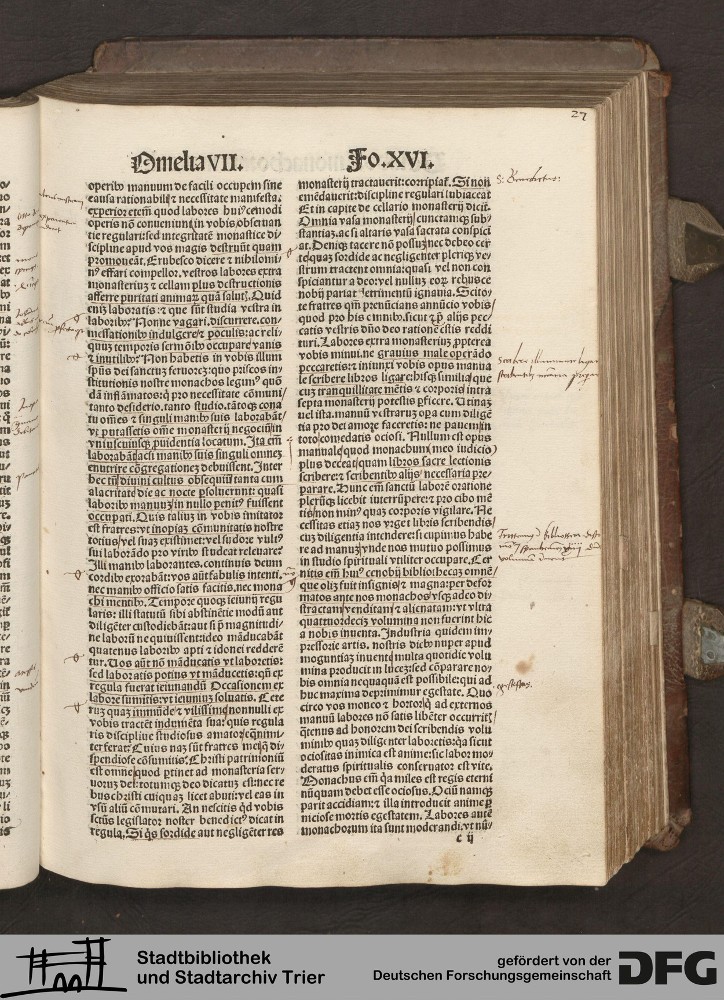 27
Omelia VII.
Fo.XVI.
operibꝰ manuum de facili occupem sine
causa rationabili ⁊ necessitate manifesta.
experior etem̄ quod labores huiꝰcemodi
operis nō conueniunt in vobis obseruan
tie regulari: sed integritatē monastice di⸗
scipline apud vos magis destruūt quam
promoueāt. Erubesco dicere ⁊ nihilomi
nꝰ effari compellor. vestros labores extra
monasteriuʒ ⁊ cellam plus destructionis
afferre puritati animaꝝ quā salutꝭ. Quid
em̄ laboratis: ⁊ que sūt studia vestra in
laboribꝰ? Nonne vagari. discurrere. con⸗
messationibꝰ indulgere ⁊ poculis: ac reli⸗
quuʒ temporis sermōibꝰ occupare vanis
⁊ inutilibꝰ? Non habetis in vobis illum
spūs dei sanctuʒ feruoreʒ: quo priscos in⸗
stitutionis nostre monachos legimꝰ quōn
dā inflāmatos: q̄ pro necessitate cōmuni
tanto desiderio. tanto studio. tātoqꝫ cona
tu om̄es ⁊ singuli manibꝰ suis laborabāt
vt putassetis om̄e monasterij negociū in
vniuscuiusqꝫ ꝓuidentia locatum. Ita em̄
laborabāt ac si manibꝰ suis singuli omnes
enutrire cōgregationeʒ debuissent. Inter
hec tn̄ diuini cultus obsequiū tanta cum
alacritate die ac nocte ꝑsoluerunt: quasi
laboribꝰ manuuʒ in nullo penitꝰ fuissent
occupati. Quis talius in vobis imitator
est fratres: vt inopias cōmunitatis nostre
totius vel suas existimet: vel sudore vultꝰ
sui laborādo pro viribꝰ studeat releuare?
Illi manibꝰ laborantes. continuis deum
cordibꝰ exorabāt: vos aūt fabulis intenti.
nec manibꝰ officio satis facitis. nec mona
chi mentibꝰ. Tempore quoqꝫ ieiunij regu
laris: illi statutū sibi abstinētie modū aut
diligēter custodiebāt: aut si ꝑ magnitudi⸗
ne laborū nequiuissent: ideo māducabāt
quatenus laboribꝰ apti ⁊ idonei redderē
tur. Uos aūt nō māducatis vt laboretis:
sed laboratis potius vt māducetis: qn̄ ex
regula fuerat ieiunandū Occasionem ex
labore sumitis: vt ieiuniuʒ soluatis. Cete
ruʒ quaʒ immūde ⁊ vilissime nonnulli ex
vobis tractēt indumēta sua: quis regula
ris discipline studiosus amator eqn̄imi
ter ferat: Cuius naʒ sūt fratres me qꝫ di⸗
spendiose cōsumitis? Christi patrimoniū
est omne quod ꝑtinet ad monasteria ser⸗
uoruʒ dei: totumqꝫ deo dicatuʒ est: nec re
bus christi cuiquaʒ licet abuti: vel eas in
vsū aliū cōmutari. An nescitis qd̄ vobis
sctūs legislator noster benedictꝰ dicat in
regula. Si q̄s sordide aut negligēter res
monasterij tractauerit: corripiaf. Si non
emēdauerit: discipline regulari subiaceat
Et in capite de cellario monasterij dicit.
Omnia vasa monasterij cunctamqꝫ sub⸗
stantiaʒ. ac si altaris vasa sacrata conspici
at. Deniqꝫ tacere nō possuʒ nec debeo cer
te: quaʒ sordide ac negligenter pleriqꝫ ve⸗
strum tractent omnia: quasi vel non con
spiciantur a deo: vel nulluʒ eoꝝ rehusce
nobis pariat detrimentū ignauia. Scito⸗
te fratres qm̄ prenūcians annūcio vobis
quod pro his omnibꝰ. sicut ⁊ ꝑ alijs pec⸗
catis vestris dn̄o deo rationē estis reddi
turi. Labores extra monasteriuʒ ꝓpterea
vobis minui. ne grauius male operādo
peccaretis: ⁊ iniunxi vobis opus manua
le scribere libros ligare: hisqꝫ similia: que
cuʒ tranquillitate mētis ⁊ corporis intra
septa monasterij potestis ꝑficere. Utinaʒ
vel ista. manuū vestraruʒ opa cum diligē
tia pro dei amore faceretis: ne panem in
toto comedatis ociosi. Nullum est opus
manuale quod monachum (meo iudicio)
plus deceat quam libros sacre lectionis
scribere: ⁊ scribentibꝰ alijs necessaria pre⸗
parare. Hunc em̄ sanctū laborē oratione
plerūqꝫ licebit interrūpere: ⁊ pro cibo mē
tis non minꝰ quaʒ corporis vigilare. Ne
cessitas etiaʒ nos vrget libris scribendis
cuʒ diligentia intendere: si cupimus habe
re ad manuʒ vnde nos mutuo possimus
in studio spirituali vtiliter occupare. Cer
nitis em̄ huiꝰ cenobij bibliothecaʒ omnē
que olīʒ fuit insignis ⁊ magna: per defor
matos ante nos monachos vsqꝫ adeo di⸗
stractam venditam ⁊ alienatam: vt vltra
quattuordeciʒ volumina non fuerint hic
a nobis inuenta. Industria quidem im⸗
pressorie artis. nostris diebꝰ nuper apud
moguntiaʒ inuentę multa quotidie volu
mina producit in luceʒ: sed cōparare no⸗
bis omnia nequaquā est possibile: qui ad
huc maxima deprimimur egestate. Quo
circo vos moneo ⁊ hortor: q̄ ad externos
manuū labores nō satis libēter occurrit
qtenus ad honorem dei scribendis volu
minibꝰ quaʒ diligenter laboretis: q̄a sicut
ociositas inimica est anime: sic labor mo⸗
deratus spiritualis conseruator est vite.
Monachus em̄ q̄a miles est regis eterni
nūquam debet esse ociosus. Ociū namqꝫ
parit accidiam: ⁊ illa introducit anime ꝑ
niciose mortis egestatem. Labores autē
monachorum ita sunt moderandi. vt nū⸗
c ij
S: Benedictus:
Stadtbibliothek
und Stadtarchiv Trier
gefördert von der
Deutschen Forschungsgemeinschaft
DFG